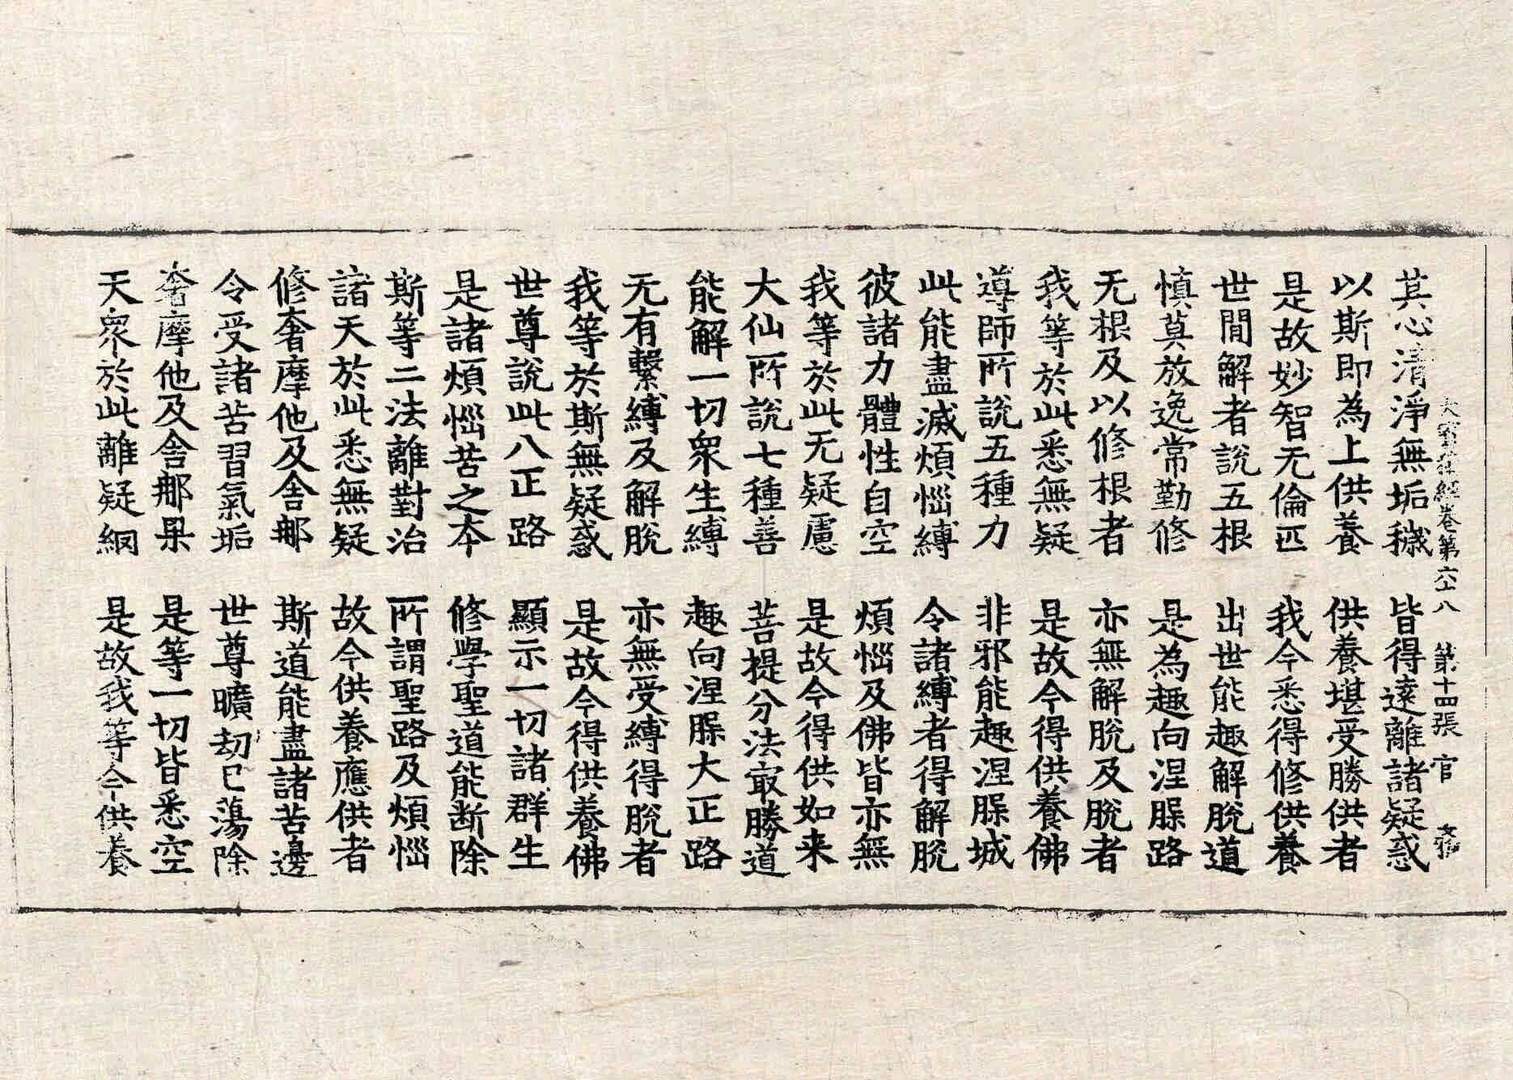 大寶積經卷第六十八 第十四張 官
其心清淨無垢穢 皆得遠離諸疑惑
以斯即為上供養 供養堪受勝供者
是故妙智无倫匹 我今悉得修供養
世間解者說五根 出世能趣解脫道
慎莫放逸常勤修 是為趣向涅槃路
无根及以修根者 亦無解脫及脫者
我等於此悉無疑 是故今得供養佛
導師所說五種力 非邪能趣涅槃城
此能盡滅煩惱縛 令諸縛者得解脫
彼諸力體性自空 煩惱及佛皆亦無
我等於此无疑慮 是故今得供如来
大仙所說七種善 菩提分法㝡勝道
能解一切衆生縛 趣向涅槃大正路
无有繫縛及解脫 亦無受縛得脫者
我等於斯無疑惑 是故今得供養佛
世尊說此八正路 顯示一切諸群生
是諸煩惱苦之本 修學聖道能断除
斯等二法離對治 所謂聖路及煩惱
諸天於此悉無疑 故今供養應供者
修奢摩他及舍那 斯道能盡諸苦邊
令受諸苦習氣垢 世尊曠劫已蕩除
奢摩他及舍那果 是等一切皆悉空
天衆於此離疑網 是故我等今供養